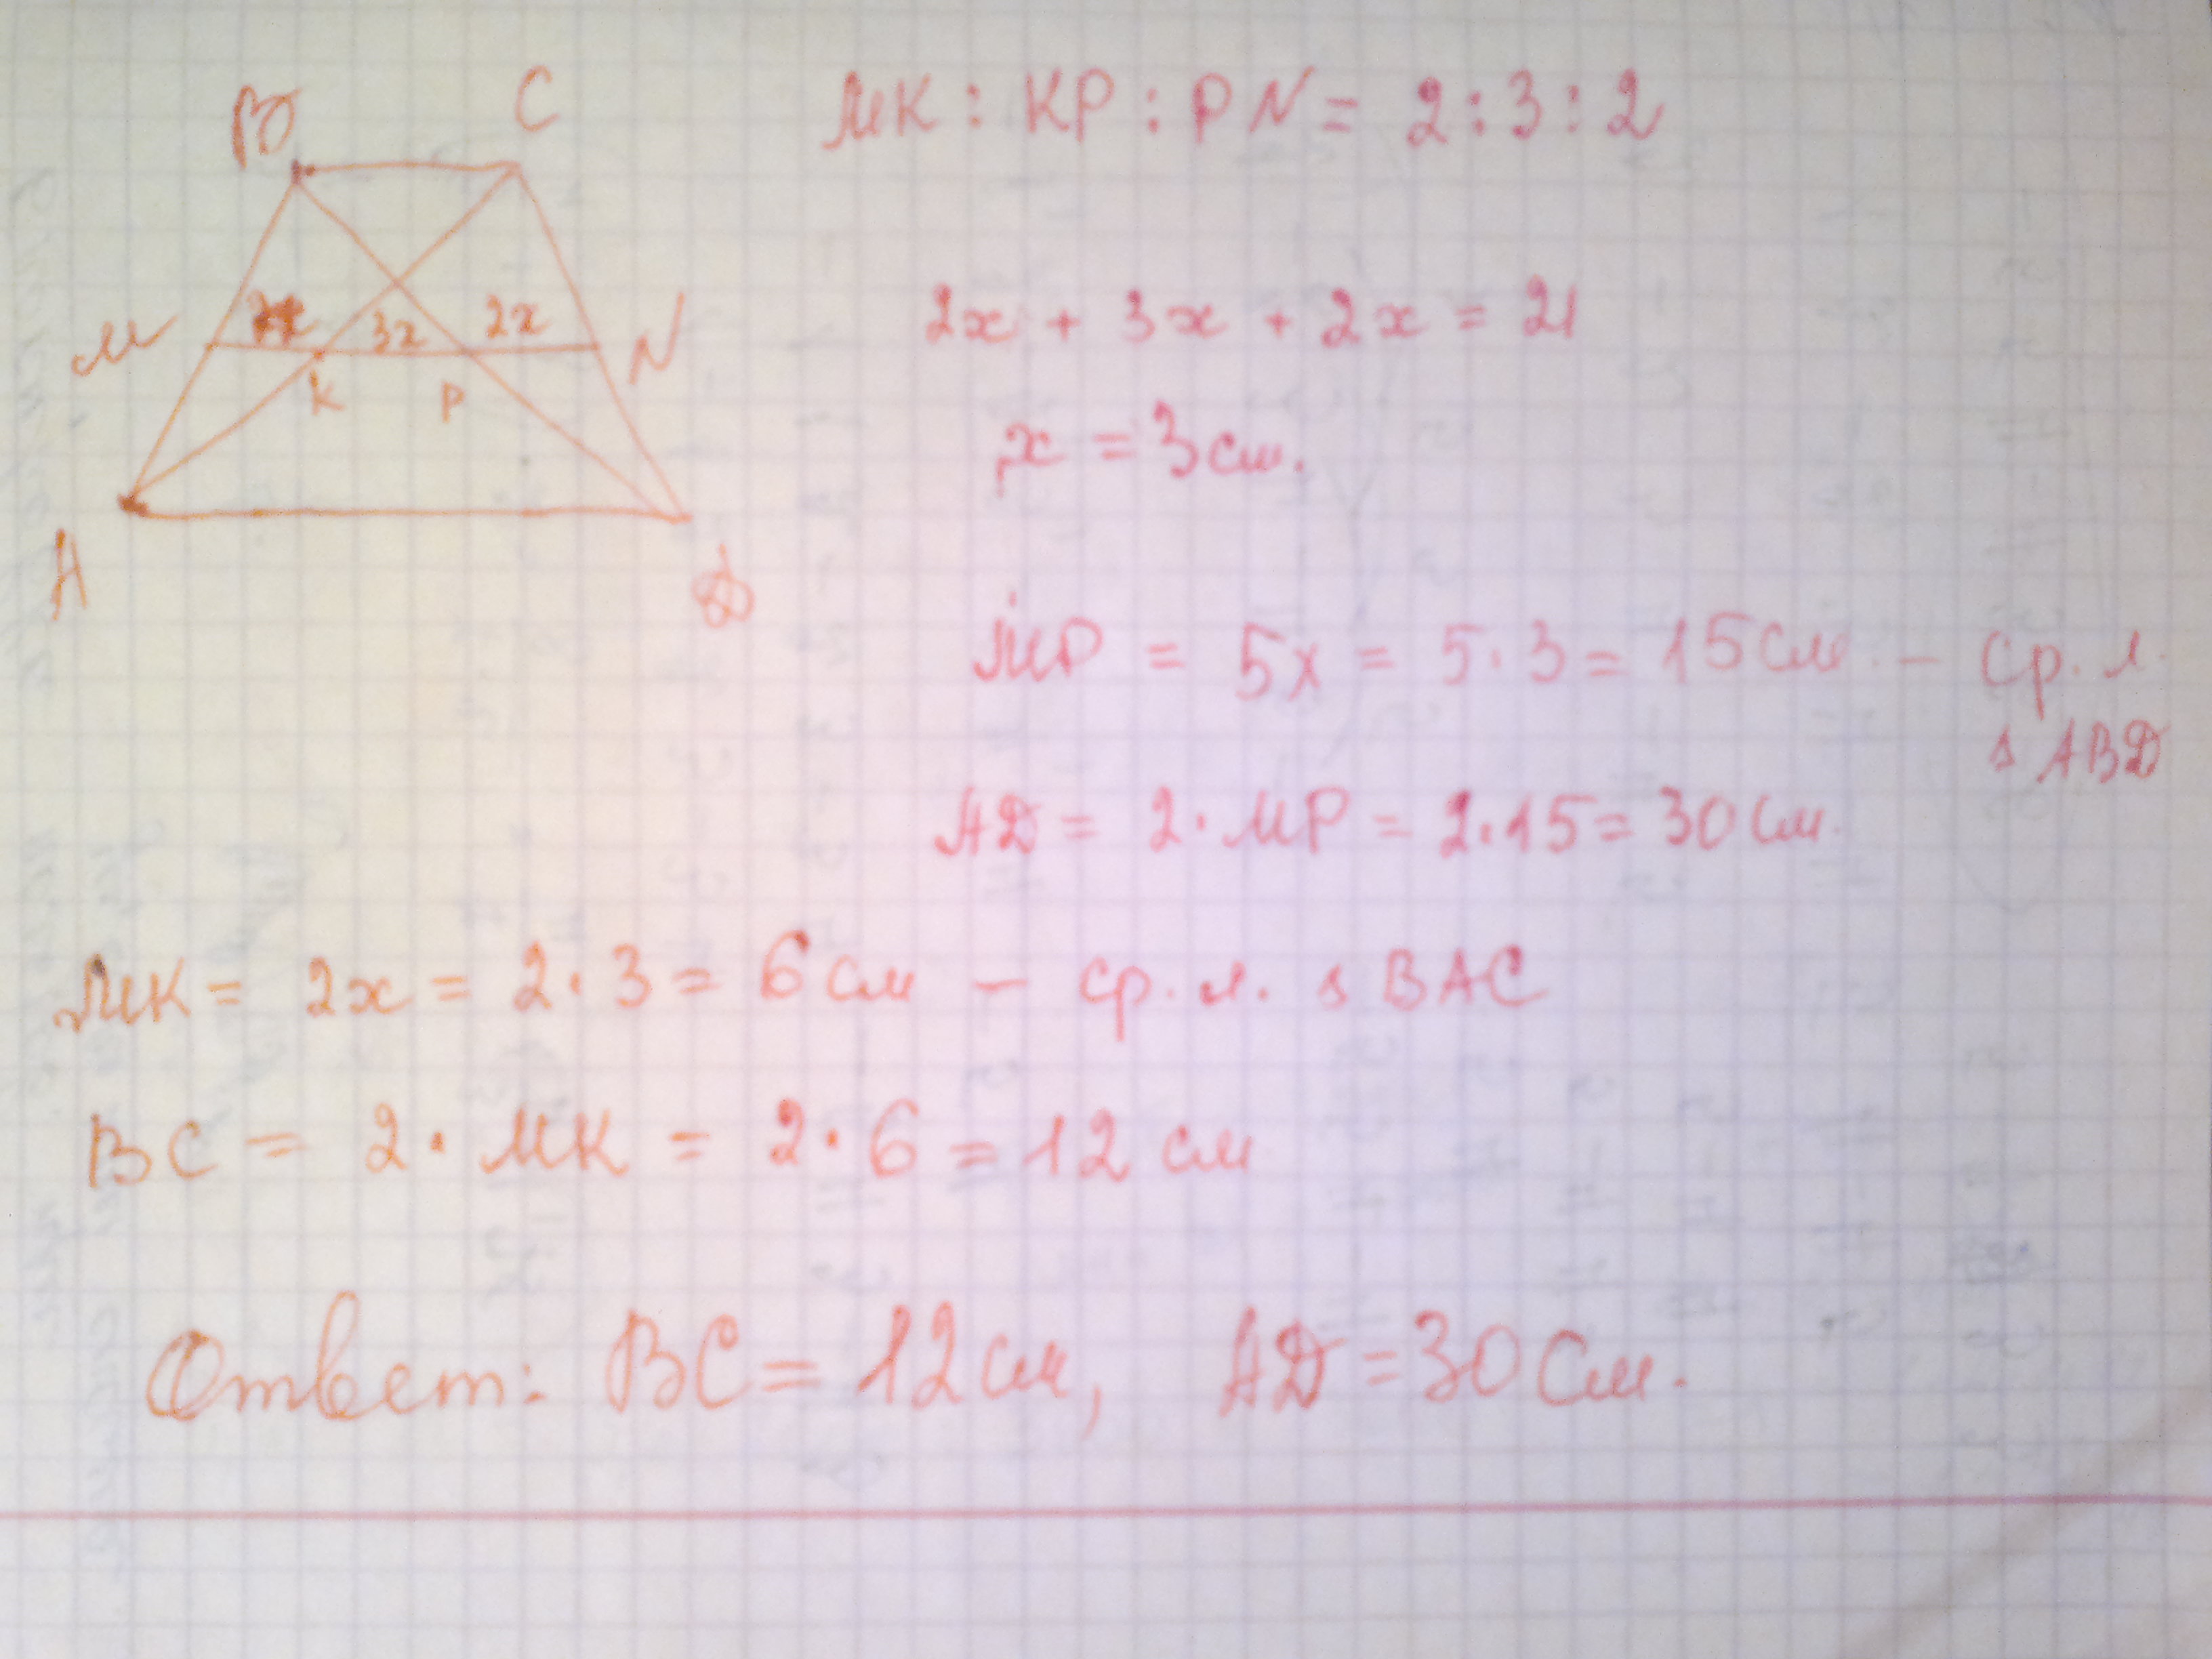 B C
MK : KP : PN = 2 : 3 : 2
M 2x 3x 2x N
K P
2x + 3x + 2x = 21
x = 3 см.
A D
MP = 5x = 5 · 3 = 15 см. – ср. л.
Δ ABD
AD = 2 · MP = 2 · 15 = 30 см.
MK = 2x = 2 · 3 = 6 см – ср. л. Δ BAC
BC = 2 · MK = 2 · 6 = 12 см
Ответ: BC = 12 см, AD = 30 см.